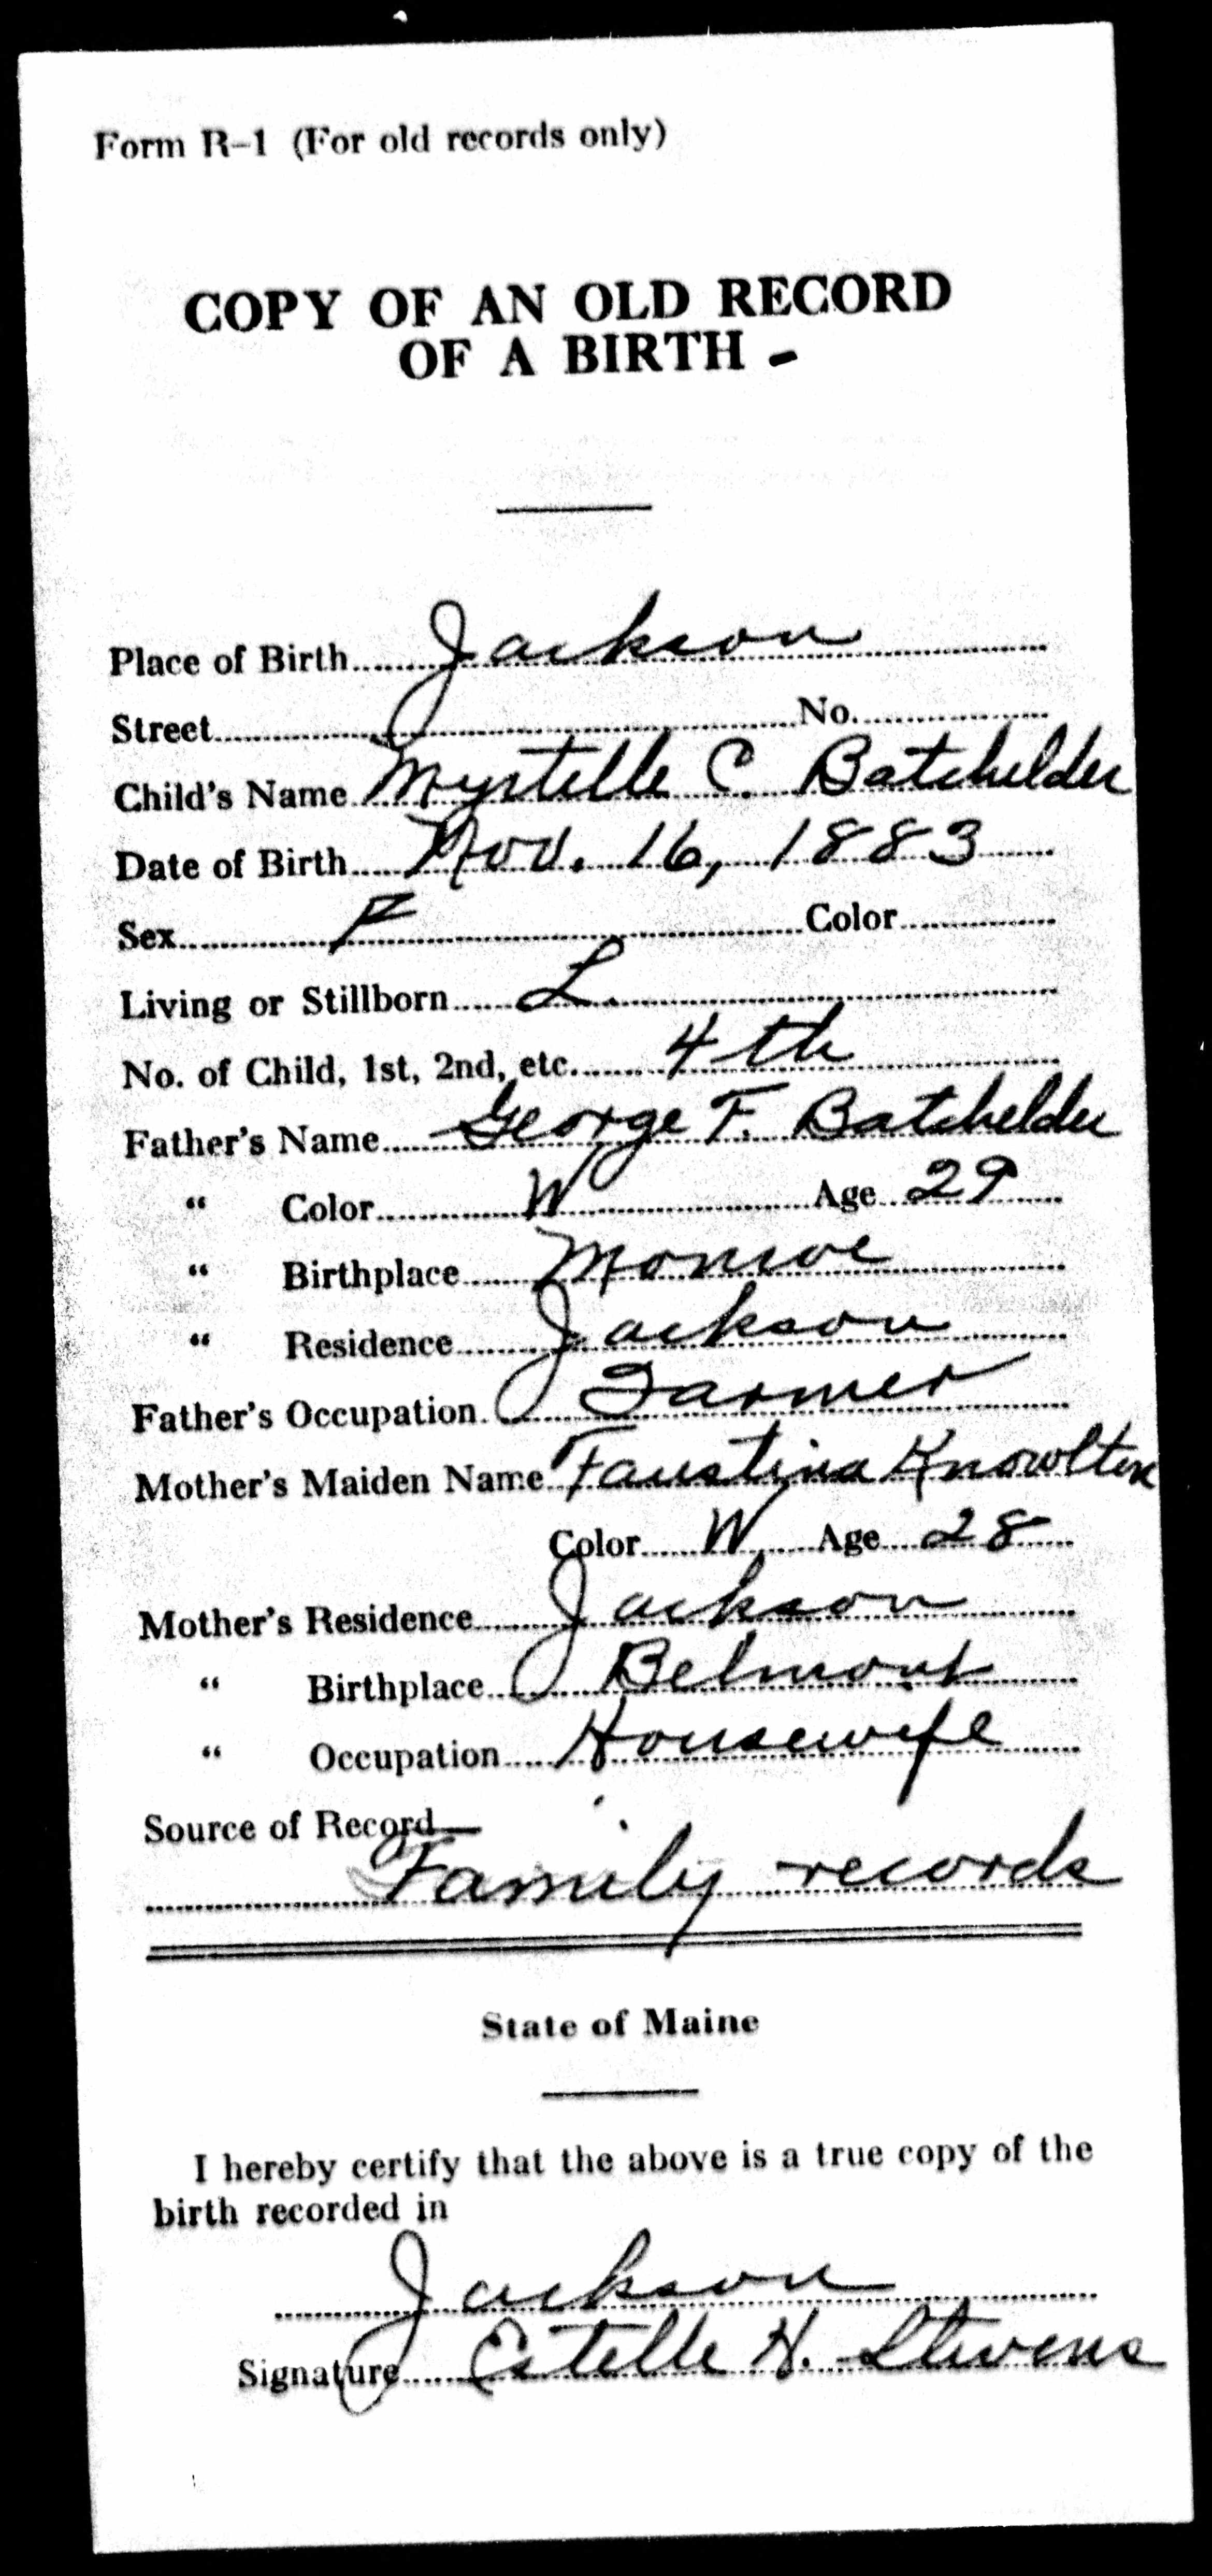 Form R-1 (For old records only)
COPY OF AN OLD RECORD
OF A BIRTH -
Place of Birth Jackson
Street No.
Child's Name Myrtelle C. Batchelder
Date of Birth Nov. 16, 1883
Sex F Color
Living or Stillborn L
No. of Child, 1st, 2nd, etc. 4th
Father's Name George F. Batchelder
" Color W Age 29
" Birthplace Monroe
" Residence Jackson
Father's Occupation Farmer
Mother's Maiden Name Faustina Knowlton
Color W Age 28
Mother's Residence Jackson
" Birthplace Belmont
" Occupation Housewife
Source of Record—
Family records
State of Maine
I hereby certify that the above is a true copy of the
birth recorded in
Jackson
Signature Estelle H. Stevens